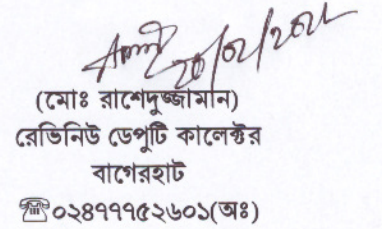 (মোঃ রাশেদুজ্জামান)
রেভিনিউ ডেপুটি কালেক্টর
বাগেরহাট
☎০২৪৭৭৭৫২৬০১(অঃ)